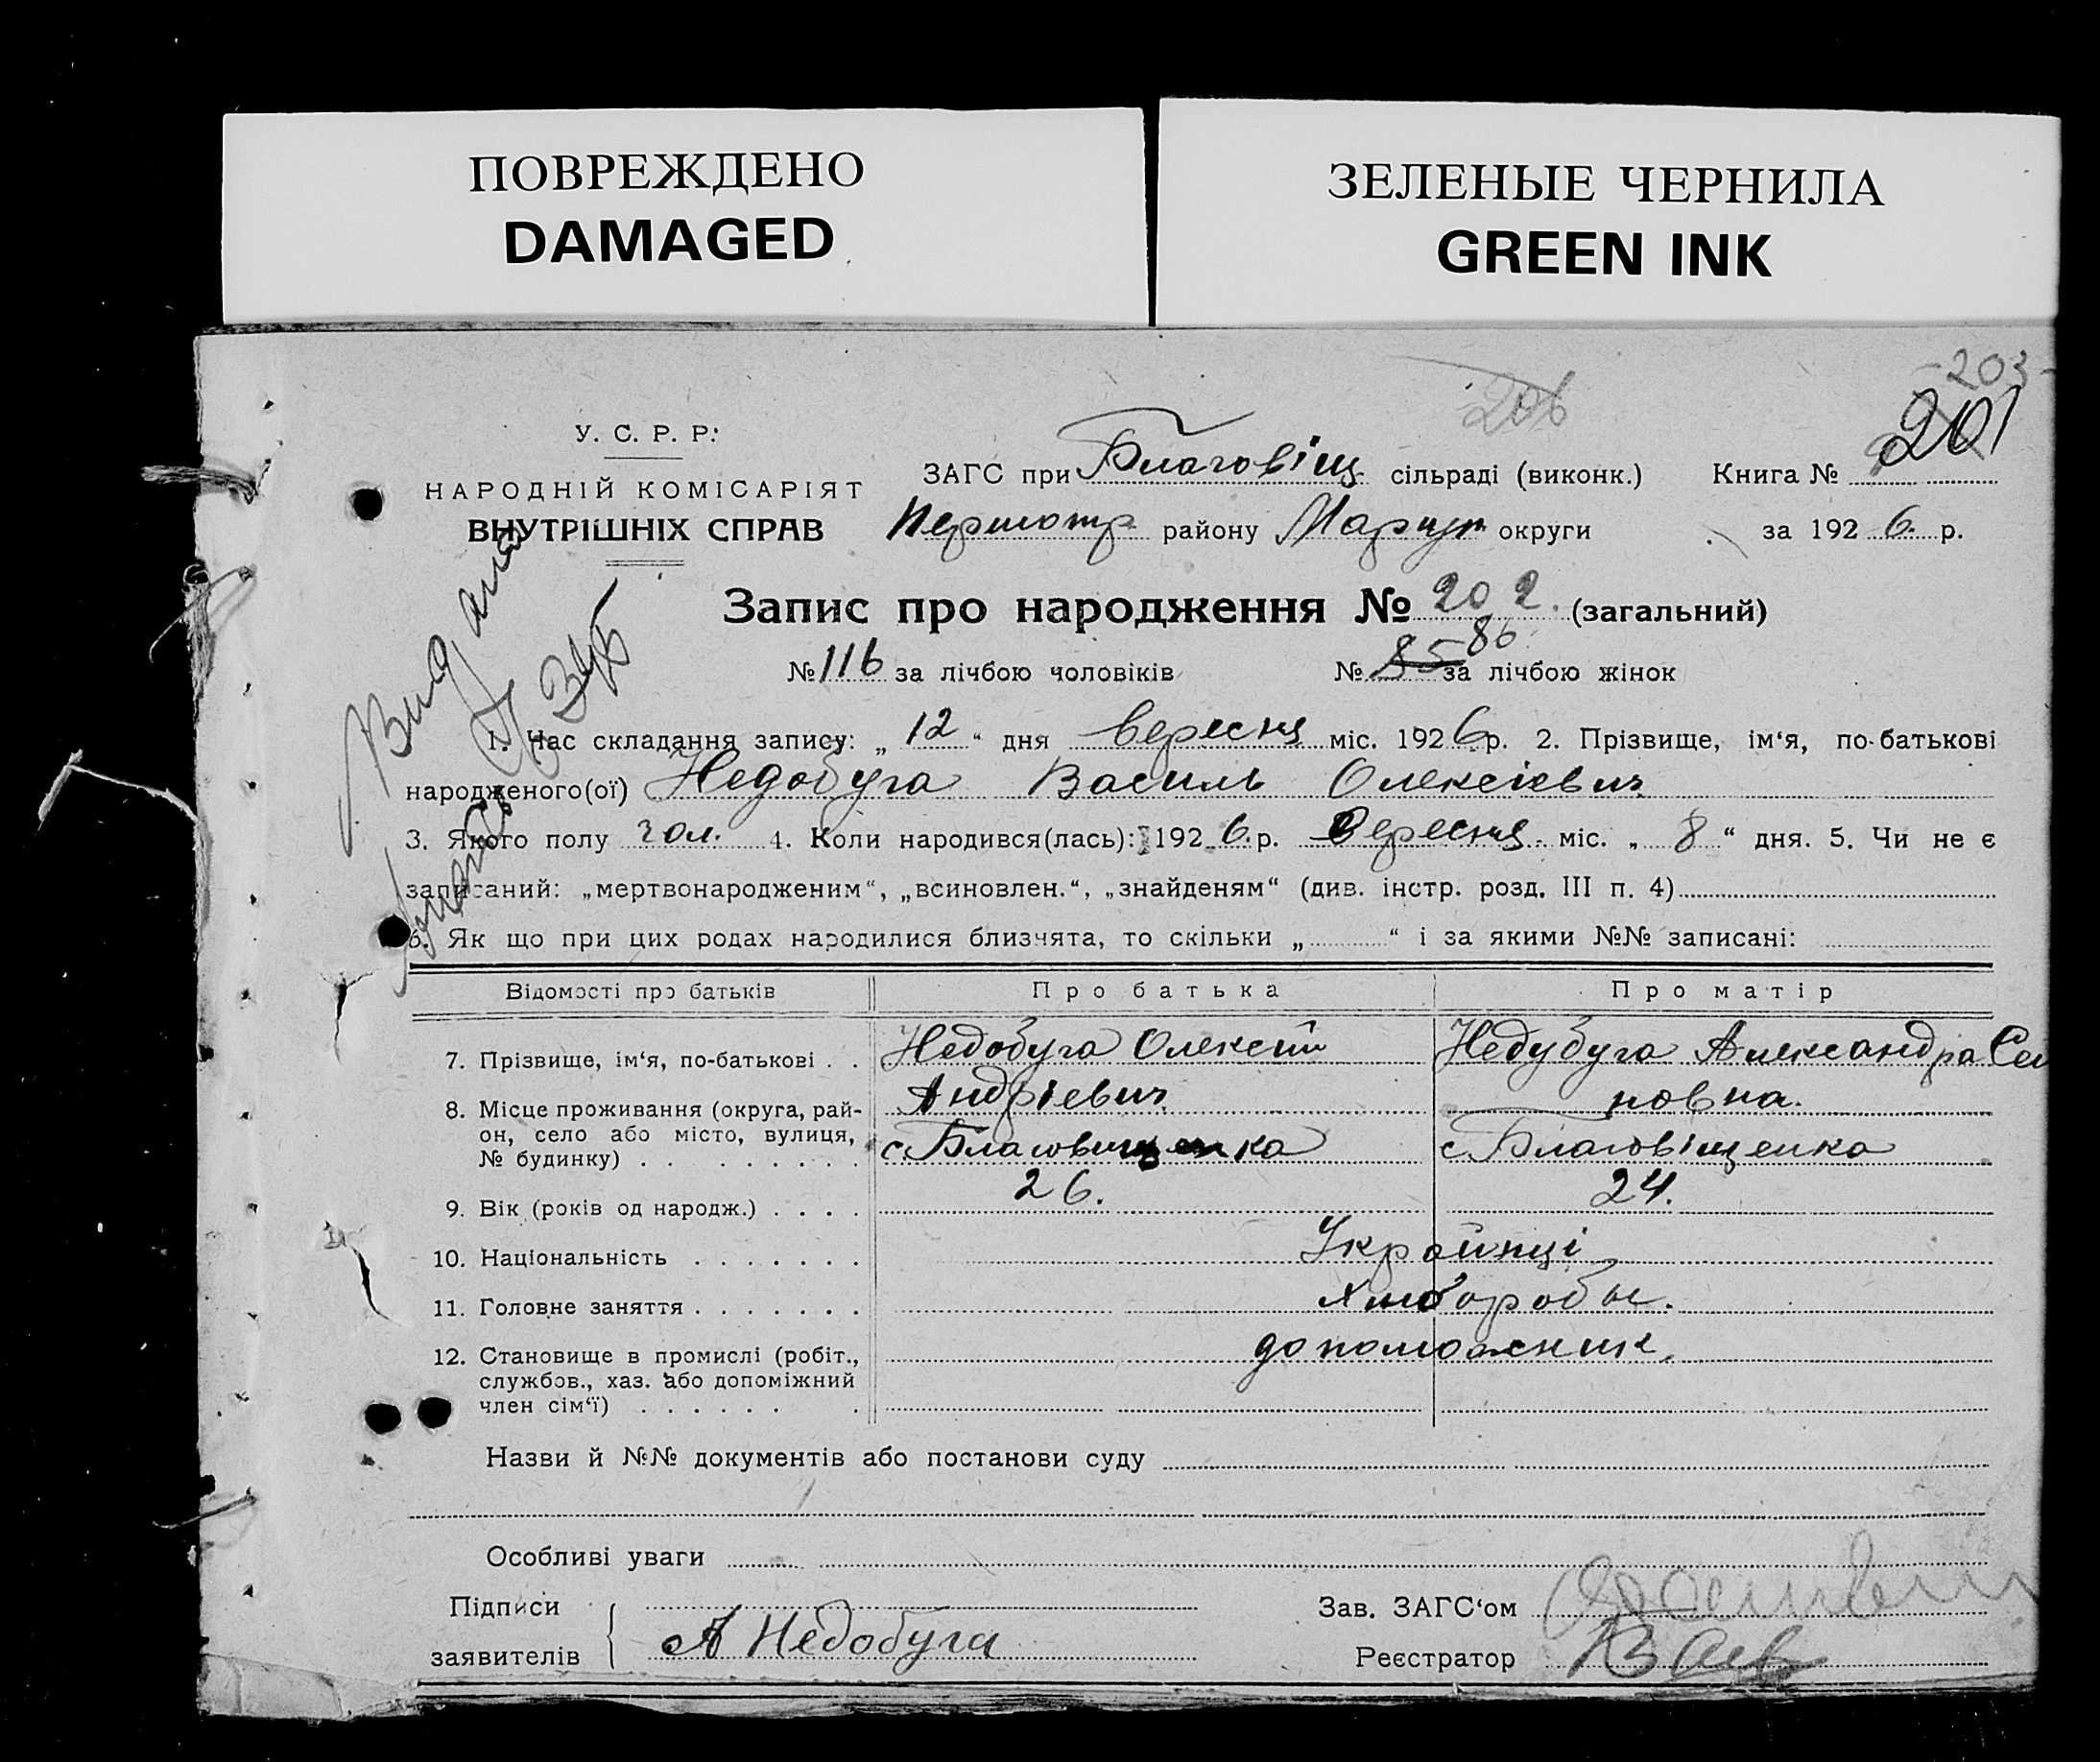 ПОВРЕЖДЕНО
DAMAGED
ЗЕЛЕНЫЕ ЧЕРНИЛА
GREEN INK
-203-
206
201
У. С. Р. Р.
НАРОДНІЙ КОМІСАРІЯТ
ВНУТРІШНІХ СПРАВ
ЗАГС при Благовіщ сільраді (виконк.) Книга №
Першотр району Маріуп округи за 1926 р.
Запис про народження № 202. (загальний)
№ 116 за лічбою чоловіків № 85 86 за лічбою жінок
Видана
1. Час складання запису: „ 12 “ дня вересня міс. 1926 р. 2. Прізвище, ім‘я, по-батькові
народженого(ої) Недобуга Василь Олексієвич
3. Якого полу чол. 4. Коли народився(лась): 1926. р. Вересня. міс. „ 8 “ дня. 5. Чи не є
записаний: „мертвонародженим“, „всиновлен.“, „знайденям“ (див. інстр. розд. III п. 4)
6. Як що при цих родах народилися близнята, то скільки „ “ і за якими №№ записані:
Відомості про батьків Про батька Про матір
7. Прізвище, ім‘я, по-батькові . . Недобуга Олексій Недубуга Александра Сем
Андріевич новна.
8. Місце проживання (округа, рай-
он, село або місто, вулиця,
№ будинку) . . . . . . . . . с. Благовищенка с. Благовіщенка
9. Вік (років од народж.) . . . . 26. 24.
10. Національність . . . . . . . Украйнці
11. Головне заняття . . . . . . . хлібороби.
12. Становище в промислі (робіт.,
службов., хаз. або допоміжний
член сім‘ї) . . . . . . . допоможник.
Назви й №№ документів або постанови суду
Особливі уваги
Підписи
заявителів А Недобуга
Зав. ЗАГС‘ом
Реєстратор